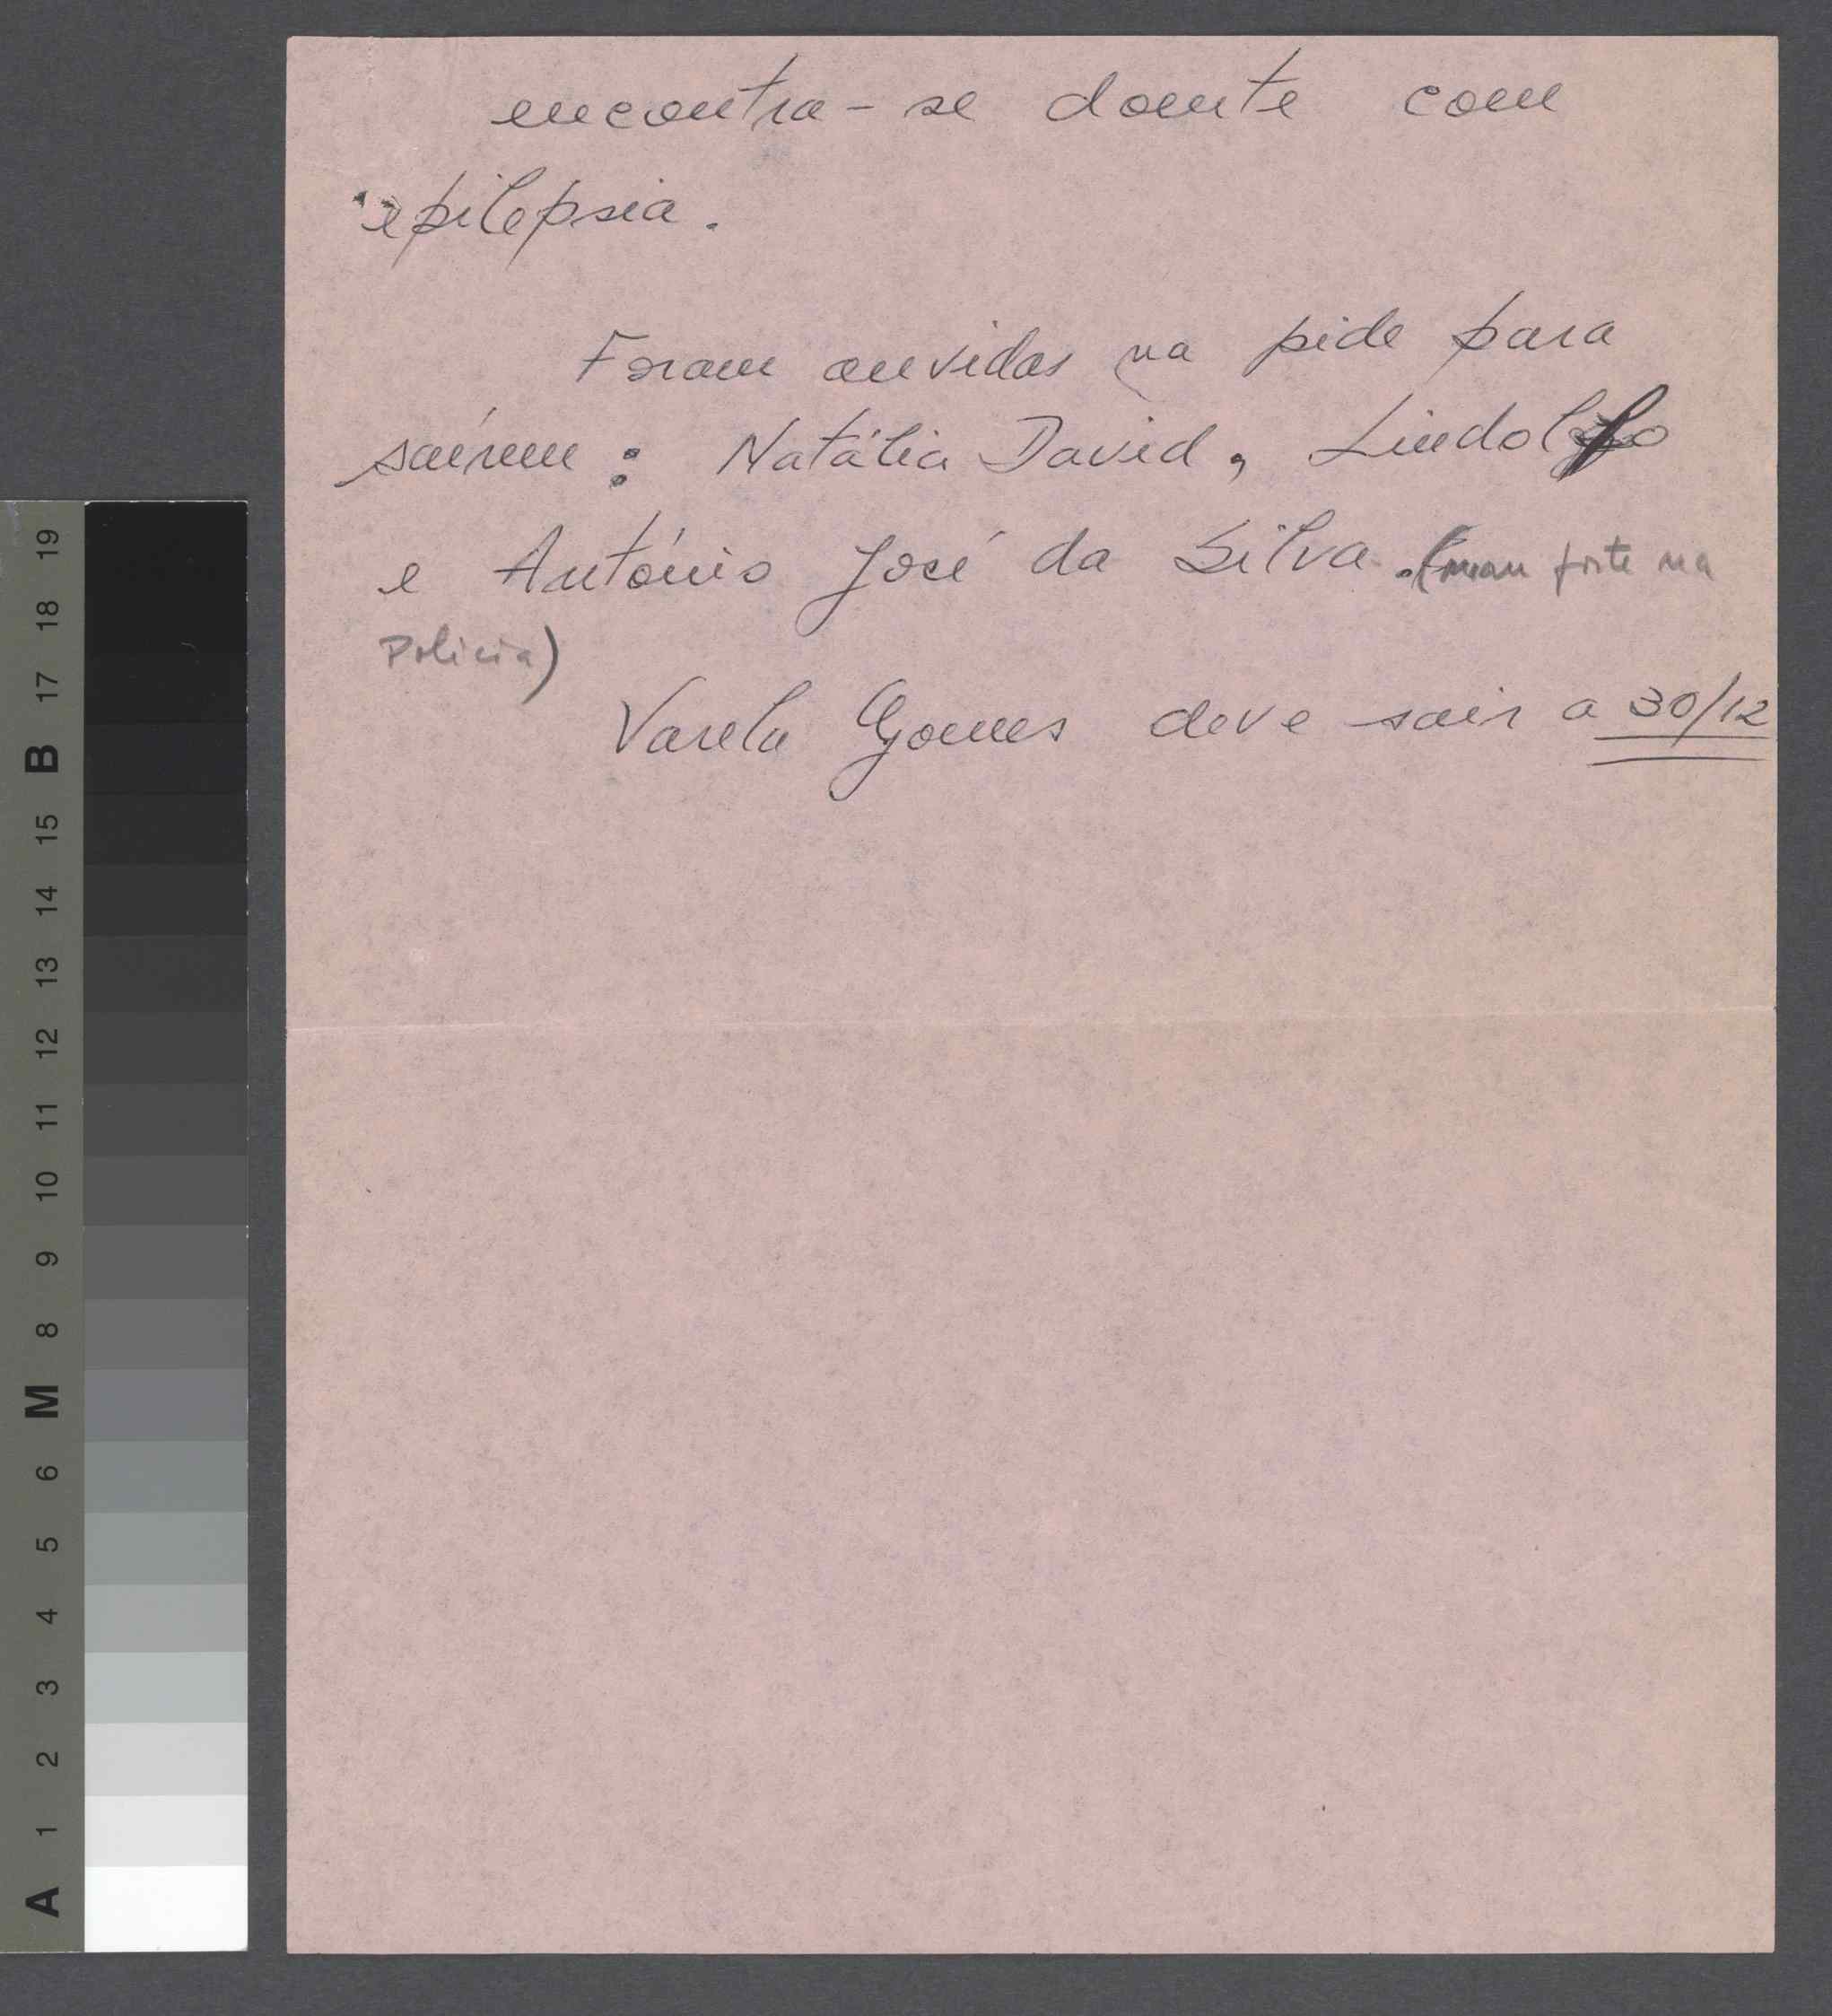 encontra-se doente com
epilepsia.
Foram ouvidas na pide para
saírem: Natália David, Lindolfo
e António José da Silva. (muau forte na
Policia)
Varela Gomes deve sair a 30/12
19
18
17
B
15
14
13
12
11
10
9
8
M
6
5
4
3
2
1
A